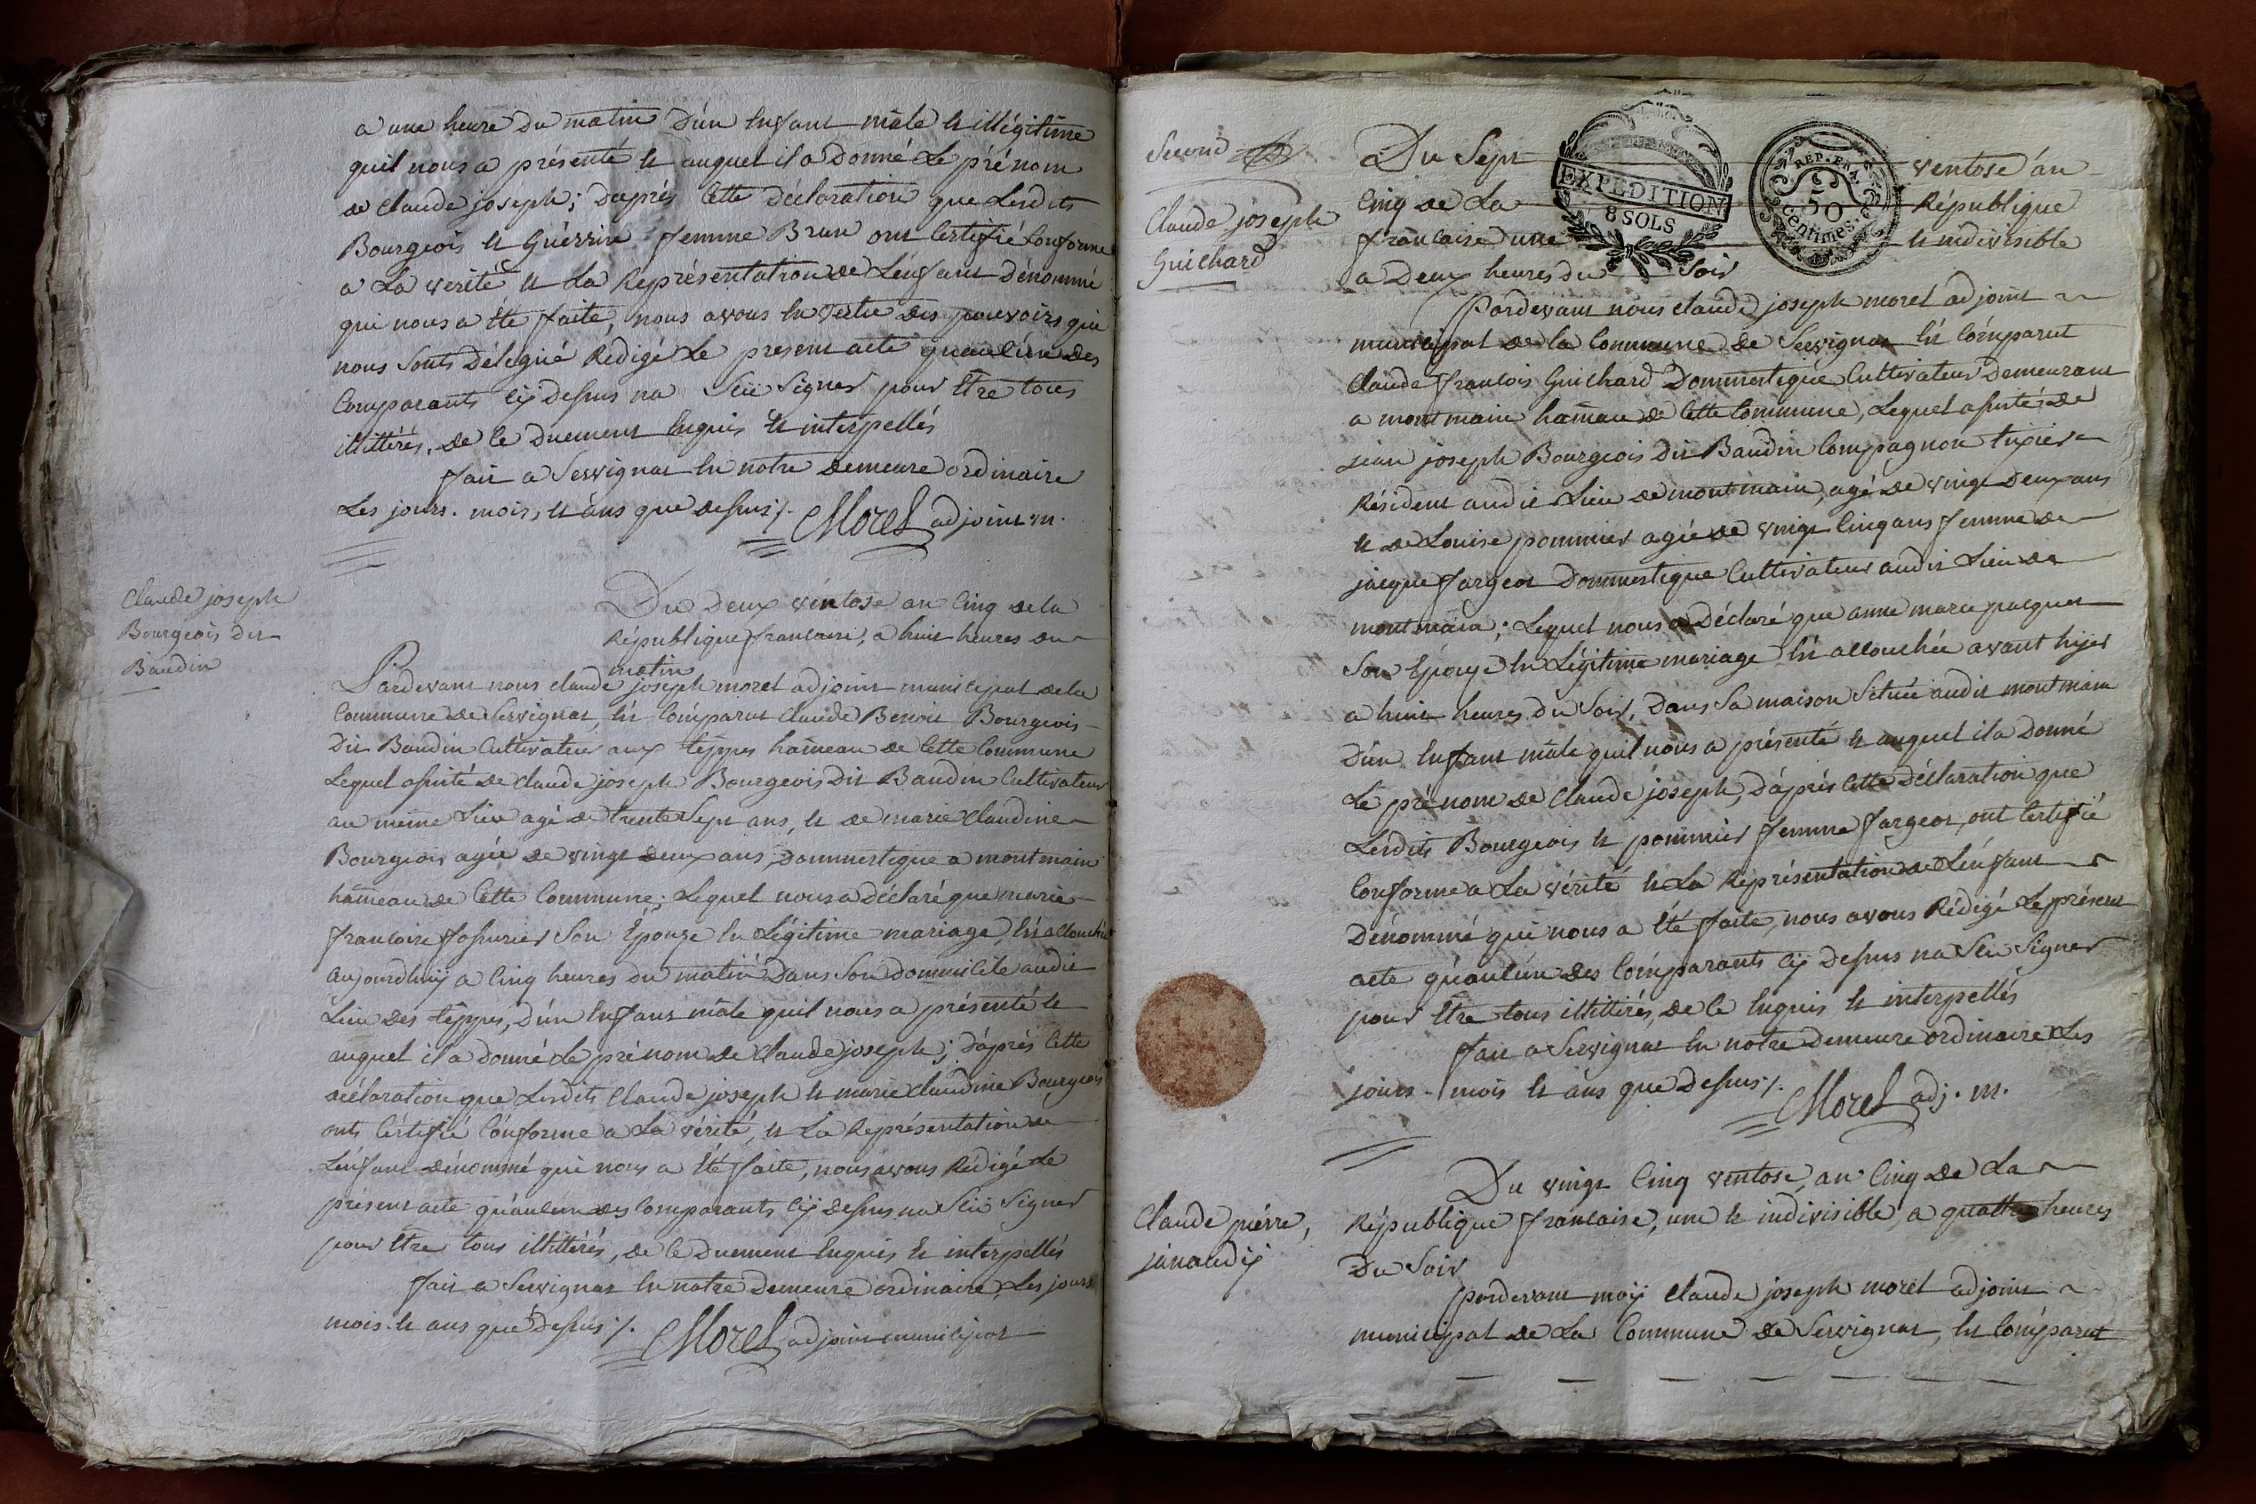 a une heure du matin d'un Enfant mâle et illégitime
quil nous a présenté et auquel il a Donné Le prénom
de claude joseph; daprés Cette déclaration que Lesdits
Bourgeois et Guérrin femme Brun ont Certifié Conforme
a La verité et La Représentation de L'énfant dénommé
qui nous a été faite, nous avons En vertu des pouvoirs qui
nous sonts délegué Rédigé Le present acte quaucun des
Comparants cÿ dessus na sçu signer pour Etre tous
illittérés, de ce duement Enquis et interpellés
fait a Servignat En notre demeure ordinaire
Les jours. mois, et ans que dessus ;/. CMorel adjoint m.
Claude joseph
Bourgeois dit
Baudin
Du deux véntose an Cinq de la
République francaise, a huit heures du
matin
Pardevant nous claude joseph morel adjoint municipal de la
Commune de Servignat, Est Comparut Claude Benoit Bourgeois
Dit Baudin Cultivateur aux têppes hameau de Cette Commune
Lequel assisté de claude joseph Bourgeois Dit Baudin Cultivateur
au même Lieu agé de trente Sept ans, et de marie claudine
Bourgeois agée de vingt deux ans, dommestique a montmain
hameau de Cette Commune; Lequel nous a déclaré que marie
francoise fossurier Son Epouze En Légitime mariage, Est accouchée
aujourdhuÿ a Cinq heures du matin dans Son dommicile audit
Lieu des têppes, d'un Enfant mâle quil nous a présenté et
auquel il a donné Le prénom de claude joseph; d'aprés Cette
déclaration que Lesdits Claude joseph et marie claudine Bourgeois
onts Certifié Conforme a La vérité, et La Représentation de
L'énfant dénommé qui nous a été faite, nous avons Rédigé Le
présent acte qu'aucun des Comparants cÿ dessus na sçu signer
pour Etre tous illittérés, de ce duement Enquis et interpéllés
fait a Servignat En notre demeure ordinaire, Les jours
mois et ans que dessus ;/. CMorel adjoint municipal
Second
Claude joseph
Guichard
Du Sept ventose an
EXPEDITION
8 SOLS
REP. FRA.
50
centimes.
Cinq de La République
francaise une et indivisible
a Deux heures du Soir
Pardevant nous claude joseph morel adjoint
municipal de la Commune de Servignat Est Comparut
Claude francois Guichard Dommestique Cultivateur Demeurant
a montmain hameau de Cette Commune, Lequel assisté de
jean joseph Bourgeois Dit Baudin Compagnon tixier
Résident audit Lieu de montmain, agé de vingt deux ans
et de Louise pommier agée de vingt Cinq ans femme de
jacque fargeot Dommestique Cultivateur audit Lieu de
montmain; Lequel nous a déclaré que anne marie pacquet
Son Epouze En Légitime mariage Est accouchée avant hyer
a huit heures du Soir, Dans Sa maison Située audit montmain
D'un Enfant mâle quil nous a présenté et auquel il a Donné
Le prénom de claude joseph, d'aprés Cette déclaration que
Lesdits Bourgeois et pommier femme fargeot, ont Certifié
Conforme a La vérité et La Représentation de L'énfant
Dénommé qui nous a été faite, nous avons Rédigé Le présent
acte qu'aucun des Comparants cÿ dessus na sçu signer
pour Etre tous illittérés, de ce Enquis et interpellés
fait a Servignat En notre demeure ordinaire Les
jours. mois et ans que dessus ;/. CMorel adj. m.
Claude piérre,
janaudÿ
Du vingt Cinq ventose, an Cinq de La
République francaise, une et indivisible, a quattre heures
Du Soir
Pardevant moÿ claude joseph morel adjoint
municipal de La Commune de Servignat, Est Comparut